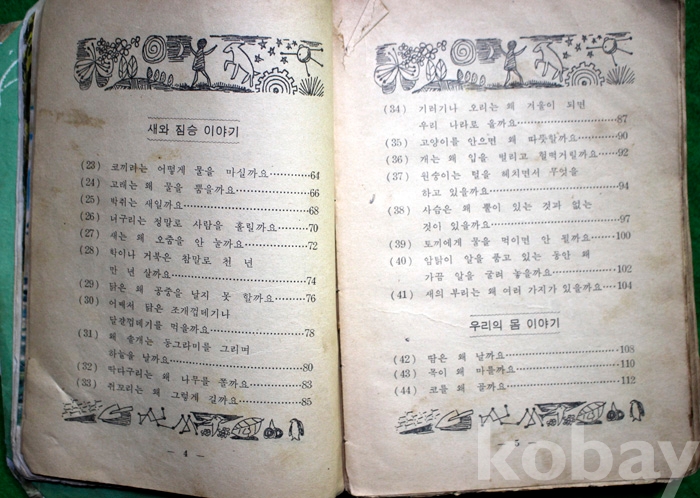 새와 짐승 이야기
(23) 코끼리는 어떻게 물을 마실까요 64
(24) 고래는 왜 물을 뿜을까요 66
(25) 박쥐는 새일까요 68
(26) 너구리는 정말로 사람을 홀릴까요 70
(27) 새는 왜 오줌을 안 눌까요 72
(28) 학이나 거북은 참말로 천 년
만 년 살까요 74
(29) 닭은 왜 공중을 날지 못 할까요 76
(30) 어째서 닭은 조개껍데기나
달걀껍데기를 먹을까요 78
(31) 왜 솔개는 동그라미를 그리며
하늘을 날까요 80
(32) 딱다구리는 왜 나무를 쫄까요 83
(33) 쥐꼬리는 왜 그렇게 길까요 85
— 4 —
(34) 기러기나 오리는 왜 겨울이 되면
우리 나라로 올까요 87
(35) 고양이를 안으면 왜 따뜻할까요 90
(36) 개는 왜 입을 벌리고 헐떡거릴까요 92
(37) 원숭이는 털을 헤치면서 무엇을
하고 있을까요 94
(38) 사슴은 왜 뿔이 있는 것과 없는
것이 있을까요 97
(39) 토끼에게 물을 먹이면 안 될까요 100
(40) 암탉이 알을 품고 있는 동안 왜
가끔 알을 굴려 놓을까요 102
(41) 새의 부리는 왜 여러 가지가 있을까요 104
우리의 몸 이야기
(42) 땀은 왜 날까요 108
(43) 목이 왜 마를까요 110
(44) 코를 왜 골까요 112
— 5 —
kobay